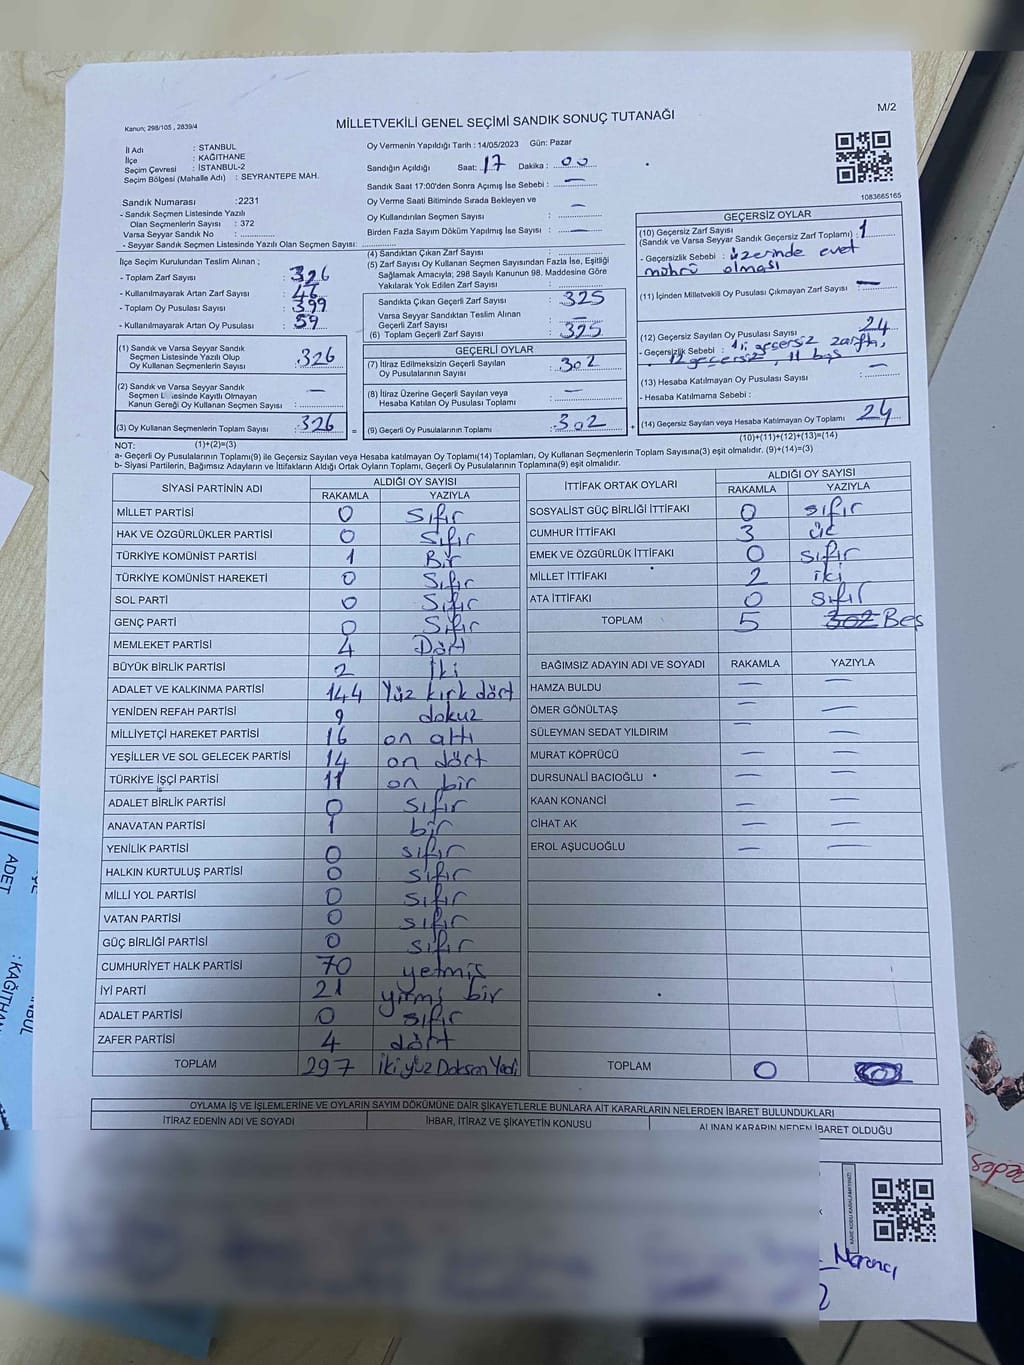 M/2
Kanun; 298/105 , 2839/4
MİLLETVEKİLİ GENEL SEÇİMİ SANDIK SONUÇ TUTANAĞI
İl Adı : STANBUL
İlçe : KAĞITHANE
Seçim Çevresi : İSTANBUL-2
Seçim Bölgesi (Mahalle Adı) : SEYRANTEPE MAH.
Sandık Numarası :2231
- Sandık Seçmen Listesinde Yazılı
Olan Seçmenlerin Sayısı : 372
Varsa Seyyar Sandık No :
- Seyyar Sandık Seçmen Listesinde Yazılı Olan Seçmen Sayısı:
Oy Vermenin Yapıldığı Tarih : 14/05/2023 Gün: Pazar
Sandığın Açıldığı Saat: 17 Dakika : 00
Sandık Saat 17:00'den Sonra Açımış İse Sebebi : —
Oy Verme Saati Bitiminde Sırada Bekleyen ve
Oy Kullandırılan Seçmen Sayısı : —
Birden Fazla Sayım Döküm Yapılmış İse Sayısı : —
1083665165
İlçe Seçim Kurulundan Teslim Alınan ;
- Toplam Zarf Sayısı : 326
- Kullanılmayarak Artan Zarf Sayısı : 46
- Toplam Oy Pusulası Sayısı : 399
- Kullanılmayarak Artan Oy Pusulası : 59
(1) Sandık ve Varsa Seyyar Sandık
Seçmen Listesinde Yazılı Olup
Oy Kullanan Seçmenlerin Sayısı : 326
(2) Sandık ve Varsa Seyyar Sandık
Seçmen Listesinde Kayıtlı Olmayan
Kanun Gereği Oy Kullanan Seçmen Sayısı : —
(3) Oy Kullanan Seçmenlerin Toplam Sayısı : 326
(4) Sandıktan Çıkan Zarf Sayısı :
(5) Zarf Sayısı Oy Kullanan Seçmen Sayısından Fazla İse, Eşitliği
Sağlamak Amacıyla; 298 Sayılı Kanunun 98. Maddesine Göre
Yakılarak Yok Edilen Zarf Sayısı :
Sandıkta Çıkan Geçerli Zarf Sayısı : 325
Varsa Seyyar Sandıktan Teslim Alınan
Geçerli Zarf Sayısı : —
(6) Toplam Geçerli Zarf Sayısı : 325
GEÇERLİ OYLAR
(7) İtiraz Edilmeksizin Geçerli Sayılan
Oy Pusulalarının Sayısı : 302
(8) İtiraz Üzerine Geçerli Sayılan veya
Hesaba Katılan Oy Pusulası Toplamı : —
= (9) Geçerli Oy Pusulalarının Toplamı : 302 +
GEÇERSİZ OYLAR
(10) Geçersiz Zarf Sayısı
(Sandık ve Varsa Seyyar Sandık Geçersiz Zarf Toplamı) : 1
- Geçersizlik Sebebi : üzerinde evet
mührü olması
(11) İçinden Milletvekili Oy Pusulası Çıkmayan Zarf Sayısı : —
(12) Geçersiz Sayılan Oy Pusulası Sayısı : 24
- Geçersizlik Sebebi : 1'i geçersiz zarftı,
12 geçersiz, 11 boş
(13) Hesaba Katılmayan Oy Pusulası Sayısı : —
- Hesaba Katılmama Sebebi :
(14) Geçersiz Sayılan veya Hesaba Katılmayan Oy Toplamı : 24
NOT: (1)+(2)=(3)
(10)+(11)+(12)+(13)=(14)
a- Geçerli Oy Pusulalarının Toplamı(9) ile Geçersiz Sayılan veya Hesaba katılmayan Oy Toplamı(14) Toplamları, Oy Kullanan Seçmenlerin Toplam Sayısına(3) eşit olmalıdır. (9)+(14)=(3)
b- Siyasi Partilerin, Bağımsız Adayların ve İttifakların Aldığı Ortak Oyların Toplamı, Geçerli Oy Pusulalarının Toplamına(9) eşit olmalıdır.
SİYASİ PARTİNİN ADI ALDIĞI OY SAYISI
RAKAMLA YAZIYLA
MİLLET PARTİSİ 0 sıfır
HAK VE ÖZGÜRLÜKLER PARTİSİ 0 Sıfır
TÜRKİYE KOMÜNİST PARTİSİ 1 Bir
TÜRKİYE KOMÜNİST HAREKETİ 0 Sıfır
SOL PARTİ 0 Sıfır
GENÇ PARTİ 0 Sıfır
MEMLEKET PARTİSİ 4 Dört
BÜYÜK BİRLİK PARTİSİ 2 İki
ADALET VE KALKINMA PARTİSİ 144 Yüz kırk dört
YENİDEN REFAH PARTİSİ 9 dokuz
MİLLİYETÇİ HAREKET PARTİSİ 16 on altı
YEŞİLLER VE SOL GELECEK PARTİSİ 14 on dört
TÜRKİYE İŞÇİ PARTİSİ 11 on bir
ADALET BİRLİK PARTİSİ 0 sıfır
ANAVATAN PARTİSİ 1 bir
YENİLİK PARTİSİ 0 sıfır
HALKIN KURTULUŞ PARTİSİ 0 sıfır
MİLLİ YOL PARTİSİ 0 sıfır
VATAN PARTİSİ 0 sıfır
GÜÇ BİRLİĞİ PARTİSİ 0 sıfır
CUMHURİYET HALK PARTİSİ 70 yetmiş
İYİ PARTİ 21 yirmi bir
ADALET PARTİSİ 0 sıfır
ZAFER PARTİSİ 4 dört
TOPLAM 297 İki yüz Doksan Yedi
İTTİFAK ORTAK OYLARI ALDIĞI OY SAYISI
RAKAMLA YAZIYLA
SOSYALİST GÜÇ BİRLİĞİ İTTİFAKI 0 sıfır
CUMHUR İTTİFAKI 3 üç
EMEK VE ÖZGÜRLÜK İTTİFAKI 0 sıfır
MİLLET İTTİFAKI 2 iki
ATA İTTİFAKI 0 sıfır
TOPLAM 5 302 Beş
BAĞIMSIZ ADAYIN ADI VE SOYADI RAKAMLA YAZIYLA
HAMZA BULDU — —
ÖMER GÖNÜLTAŞ — —
SÜLEYMAN SEDAT YILDIRIM — —
MURAT KÖPRÜCÜ — —
DURSUNALİ BACIOĞLU — —
KAAN KONANCİ — —
CİHAT AK — —
EROL AŞUCUOĞLU — —
TOPLAM 0
OYLAMA İŞ VE İŞLEMLERİNE VE OYLARIN SAYIM DÖKÜMÜNE DAİR ŞİKAYETLERLE BUNLARA AİT KARARLARIN NELERDEN İBARET BULUNDUKLARI
İTİRAZ EDENİN ADI VE SOYADI İHBAR, İTİRAZ VE ŞİKAYETİN KONUSU ALINAN KARARIN NEDEN İBARET OLDUĞU
ADET
: KAĞITHAN